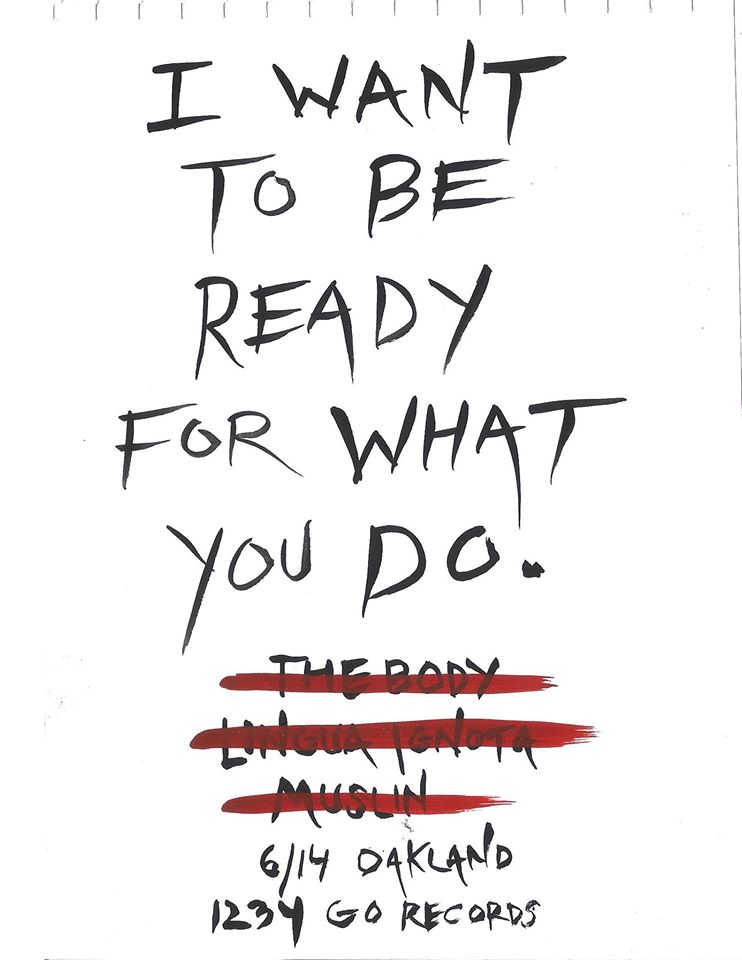 I WANT
TO BE
READY
FOR WHAT
YOU DO.
THE BODY
LINGUA IGNOTA
MUSLIN
6/14 OAKLAND
1234 GO RECORDS